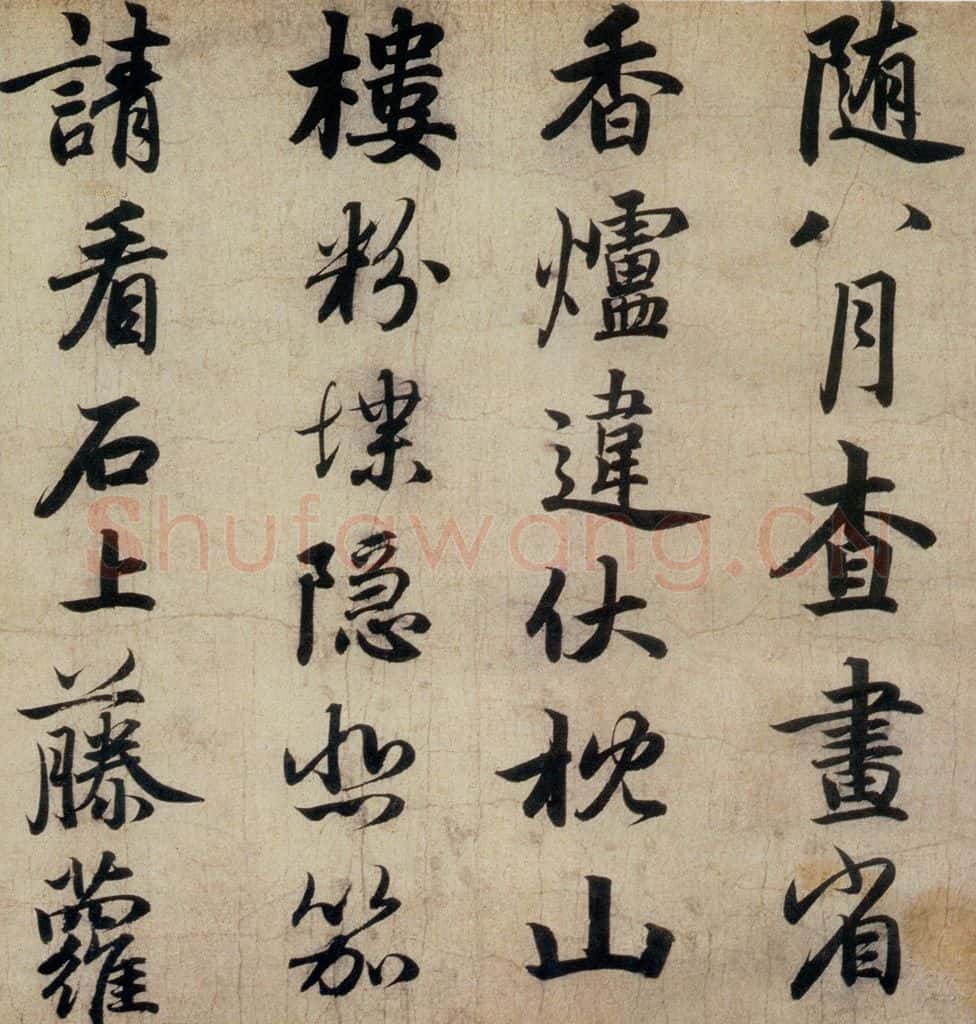 随八月查畫省
香爐違伏枕山
樓粉堞隐悲笳
請看石上藤蘿
Shufawang.cn